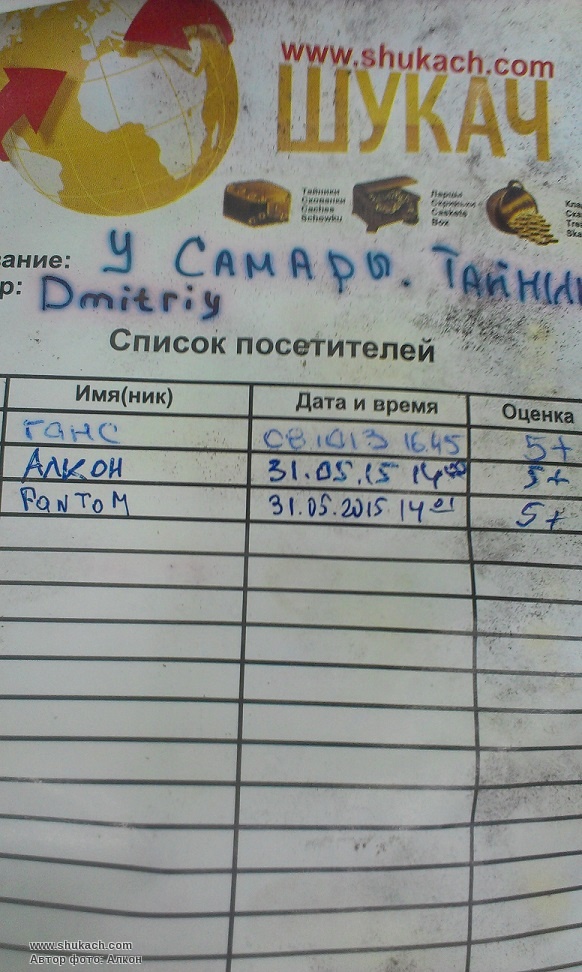 www.shukach.com
ШУКАЧ
Тайники
Схованки
Caches
Schowku
Ларцы
Скриньки
Caskets
Box
ание: У САМАРЫ.
р: Dmitriy
Список посетителей
Имя(ник) Дата и время Оценка
ГАНС 16.45 5+
АЛКОН 31.05.15 14 5+
FANToM 31.05.2015 14 01 5+
www.shukach.com
Автор фото: Алкон